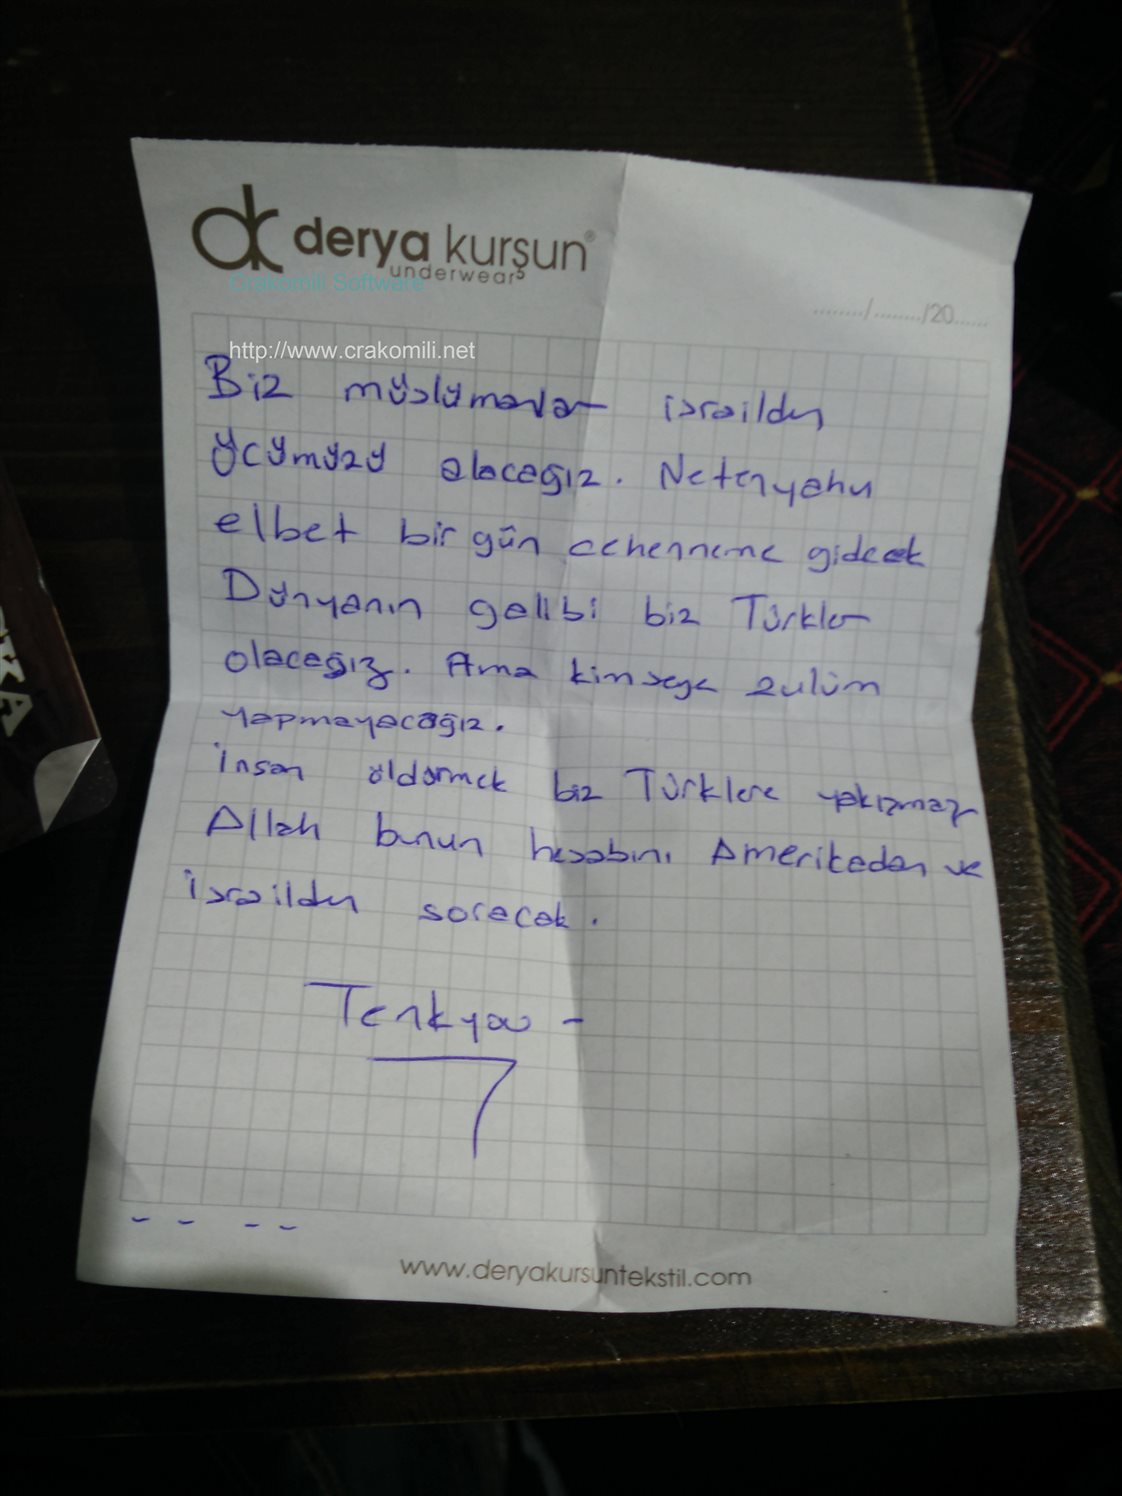 dk derya kurşun®
underwear
Crakomili Software
......../......../20......
http://www.crakomili.net
Biz müslümanlar israilden
öcümüzü alacağız. Netenyahu
elbet bir gün cehenneme gidecek
Dünyanın galibi biz Türkler
olacağız. Ama kimseye zulüm
yapmayacağız.
insan öldürmek biz Türklere yakışmaz
Allah bunun hesabını Amerikadan ve
israilden soracak.
Tenkyou -
7
- - - -
www.deryakursuntekstil.com